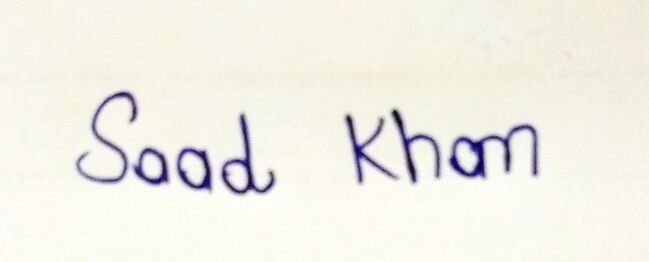 Saad Khan